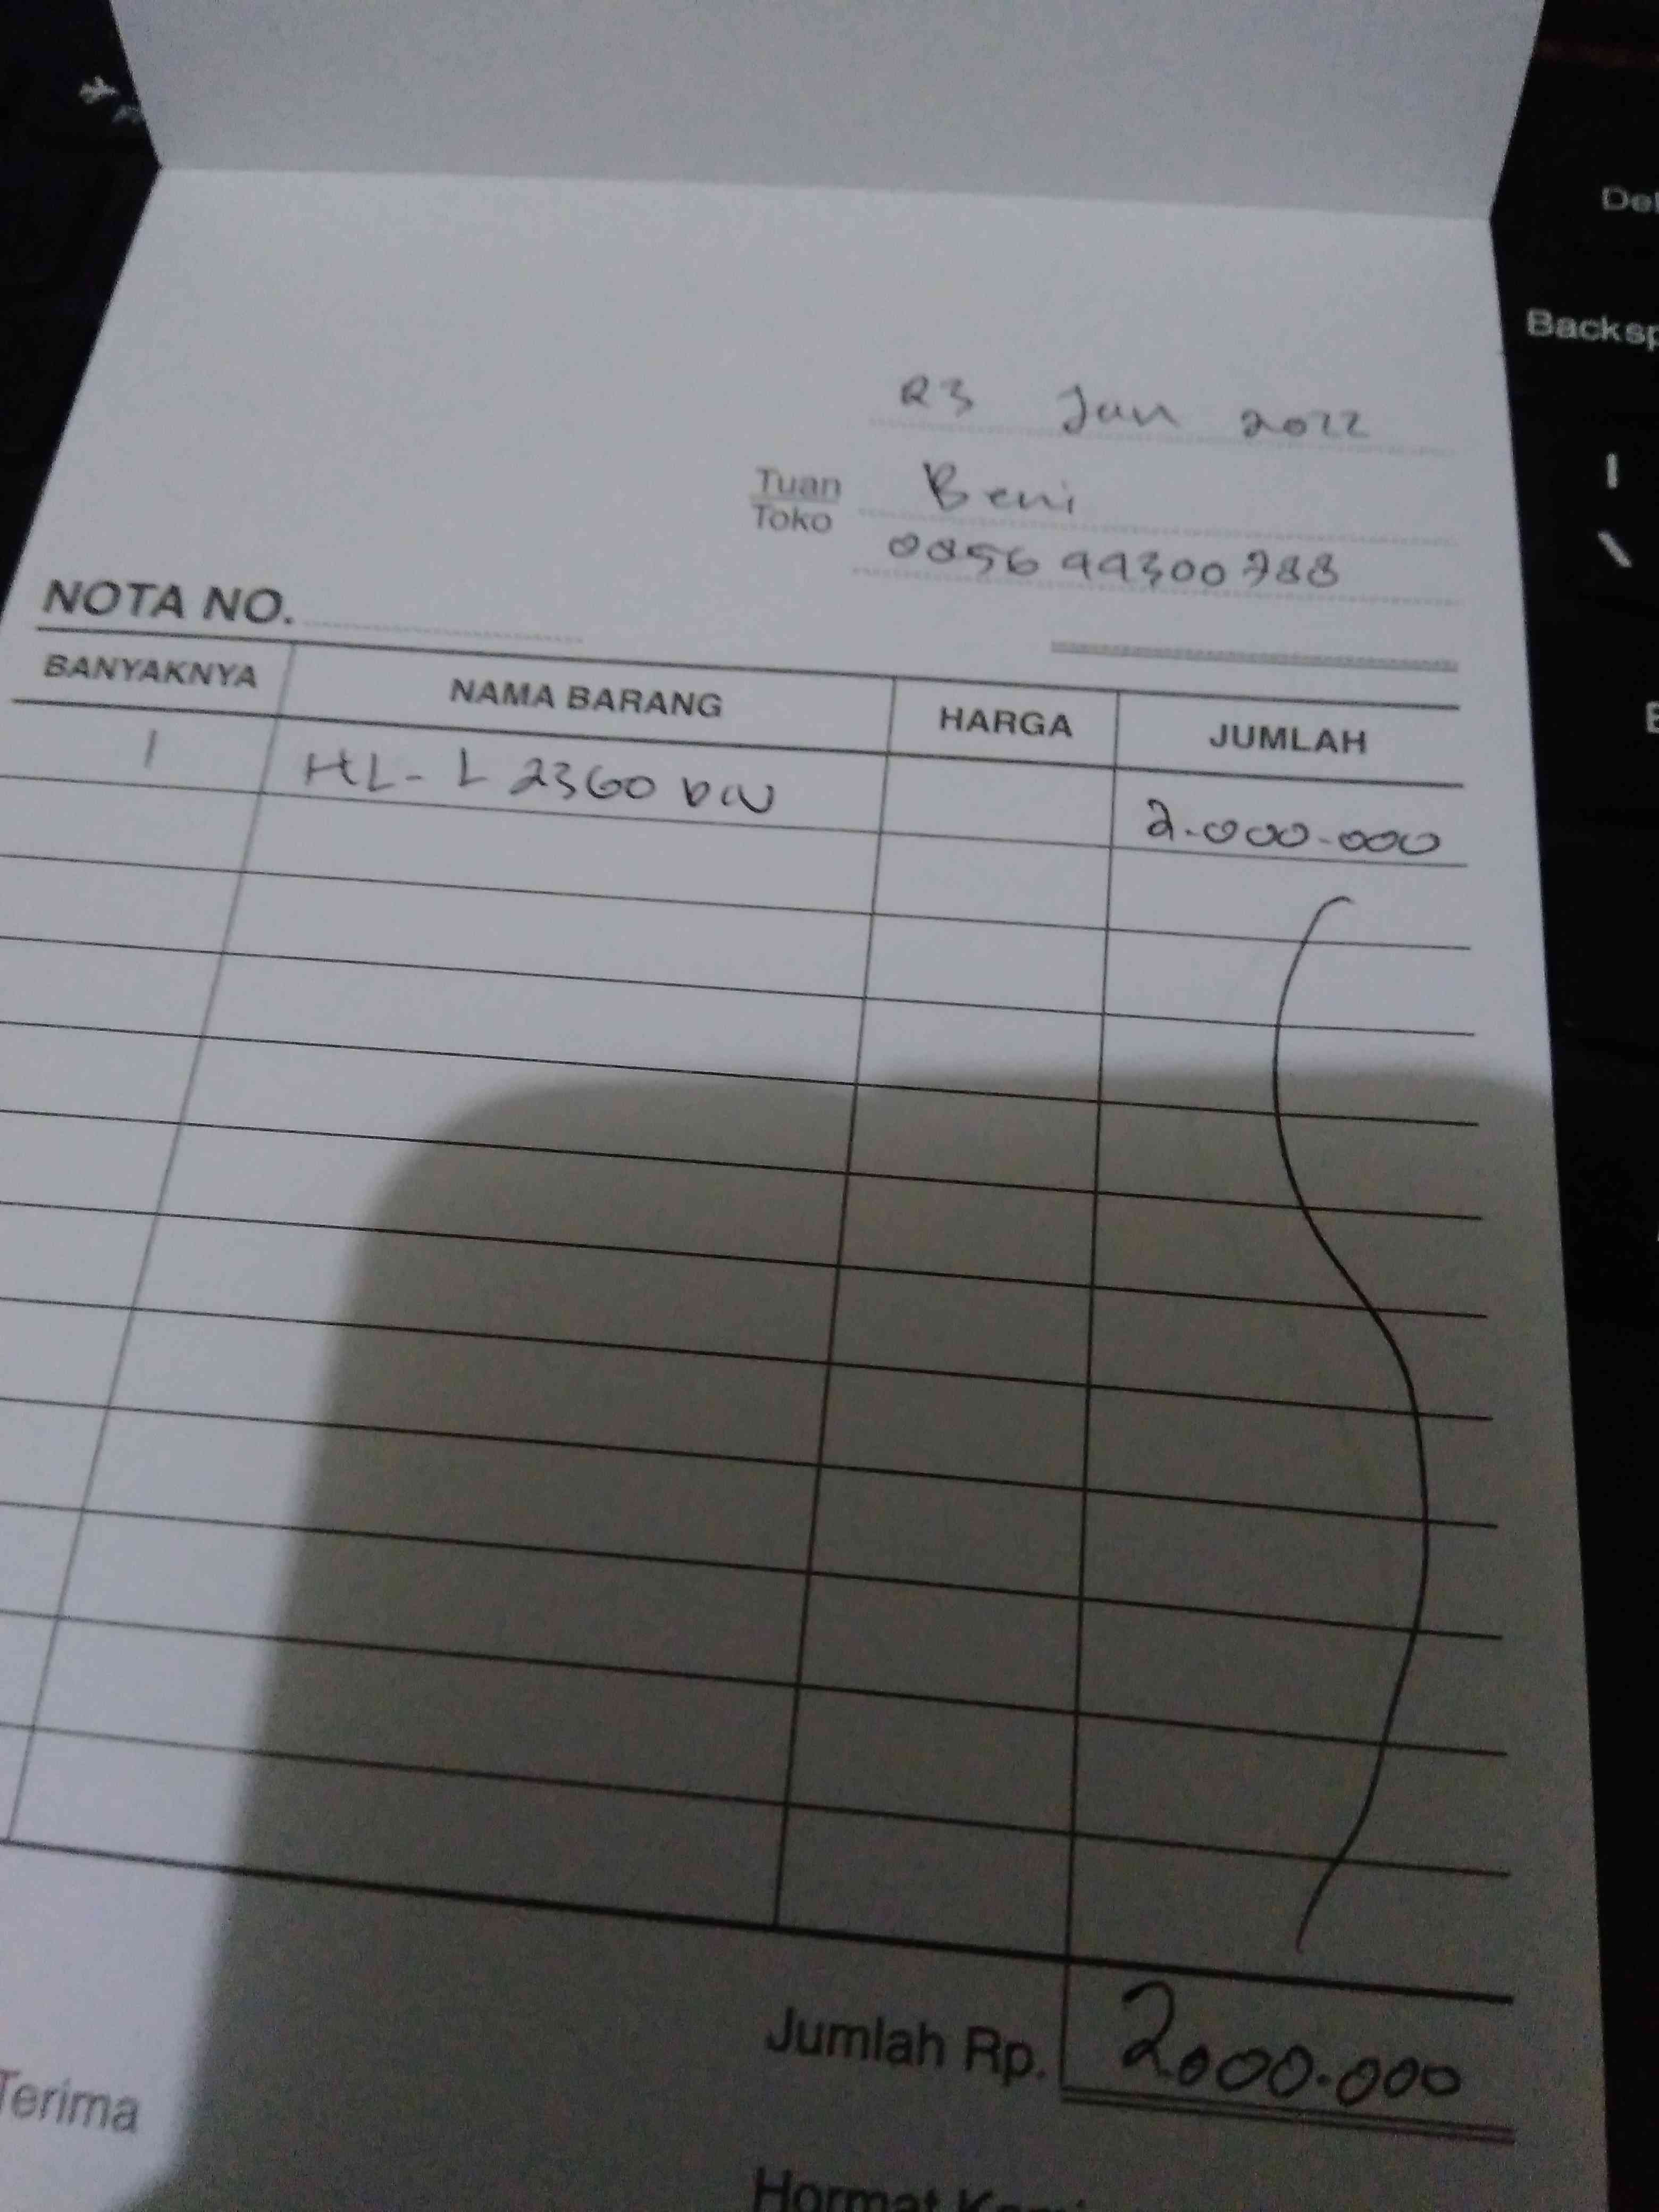 Del
Backsp
23 Jan 2022
Tuan Beni
Toko
085699300788
NOTA NO.
BANYAKNYA NAMA BARANG HARGA JUMLAH
1 HL-L2360 DN 2.000.000
Jumlah Rp. 2.000.000
Terima
Hormat